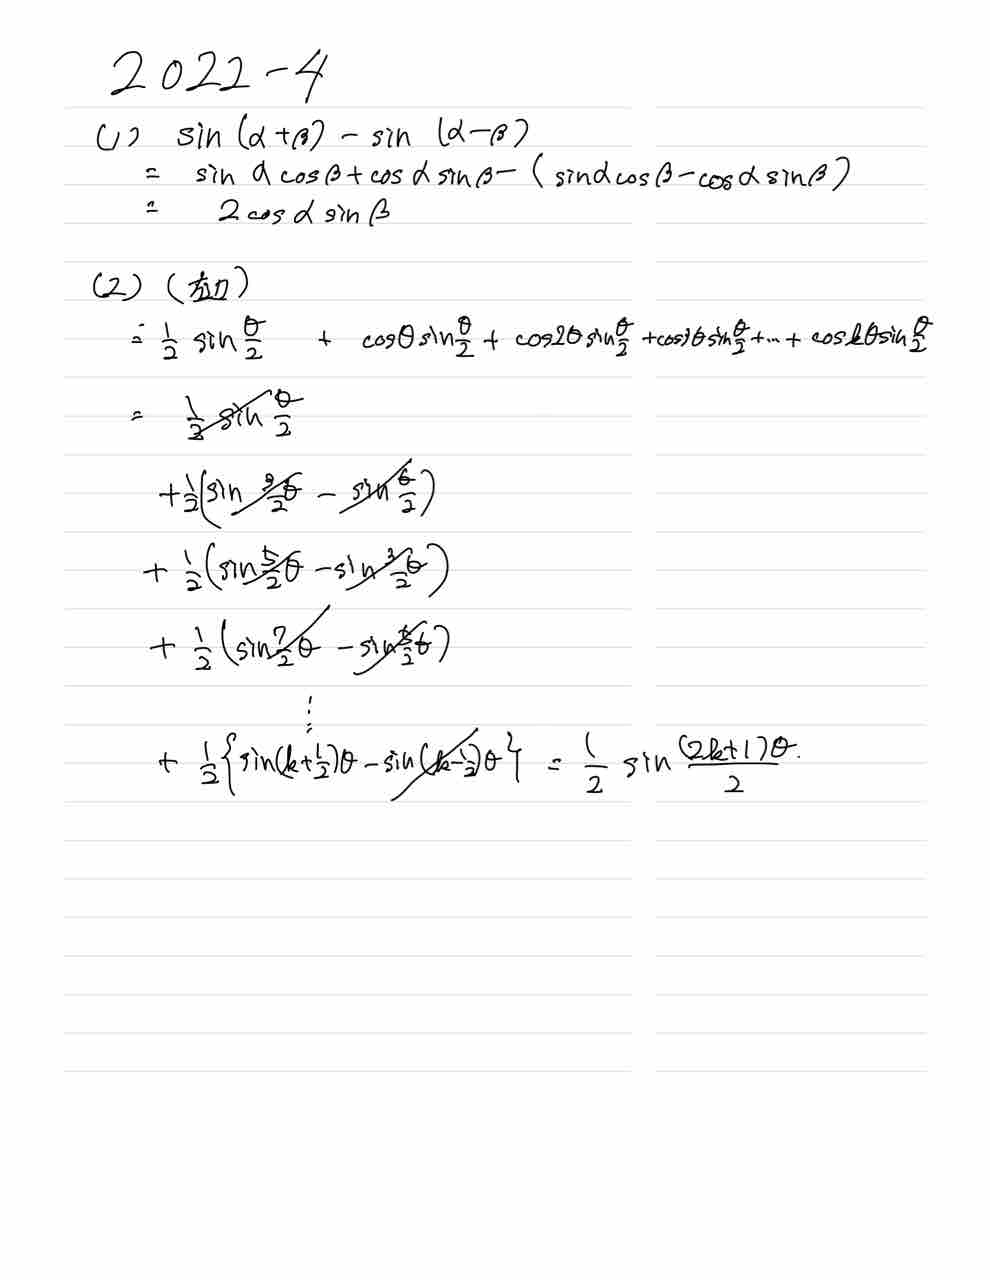 2022-4
(1) sin(α+β) - sin(α-β)
= sin α cos β + cos α sin β - (sin α cos β - cos α sin β)
= 2 cos α sin β
(2) (左辺)
= 1/2 sin θ/2 + cos θ sin θ/2 + cos 2θ sin θ/2 + cos 3θ sin θ/2 + … + cos kθ sin θ/2
= 1/2 sin θ/2
+ 1/2 (sin 3/2 θ - sin θ/2)
+ 1/2 (sin 5/2 θ - sin 3/2 θ)
+ 1/2 (sin 7/2 θ - sin 5/2 θ)
⋮
+ 1/2 {sin(k+1/2)θ - sin(k-1/2)θ} = 1/2 sin (2k+1)θ/2.